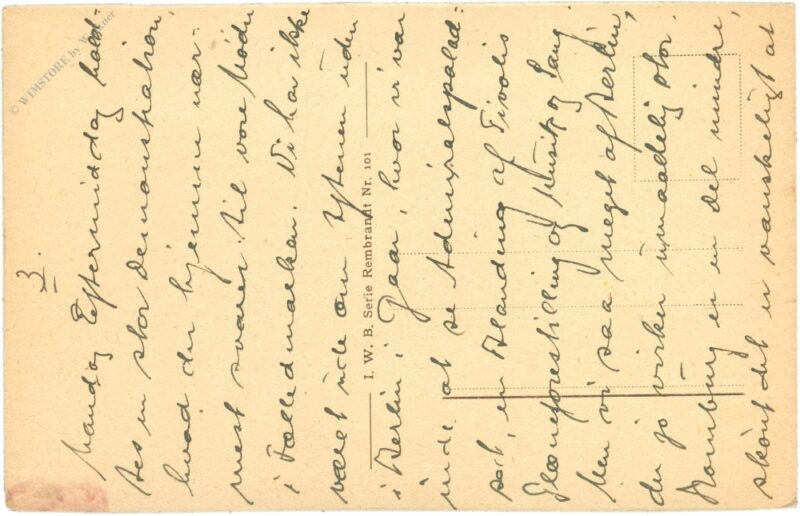 3.
Mandag Eftermiddag hold-
tes en stor Demonstration,
hvad der hjemme nær-
mest svarer til vore Møder
i Fælledparken. Vi har ikke
været ude om Aftenen uden
i Berlin i Gaar, hvor vi var
inde at se Admiralspalad-
set, en Blanding af Tivolis
Glasforestilling og Musik og Sang.
Men vi saa meget af Berlin,
der jo virker umaadelig stor.
Hamburg er en del mindre,
skønt det er vanskeligt at
I. W. B. Serie Rembrandt Nr. 101
© WIMSTORE by